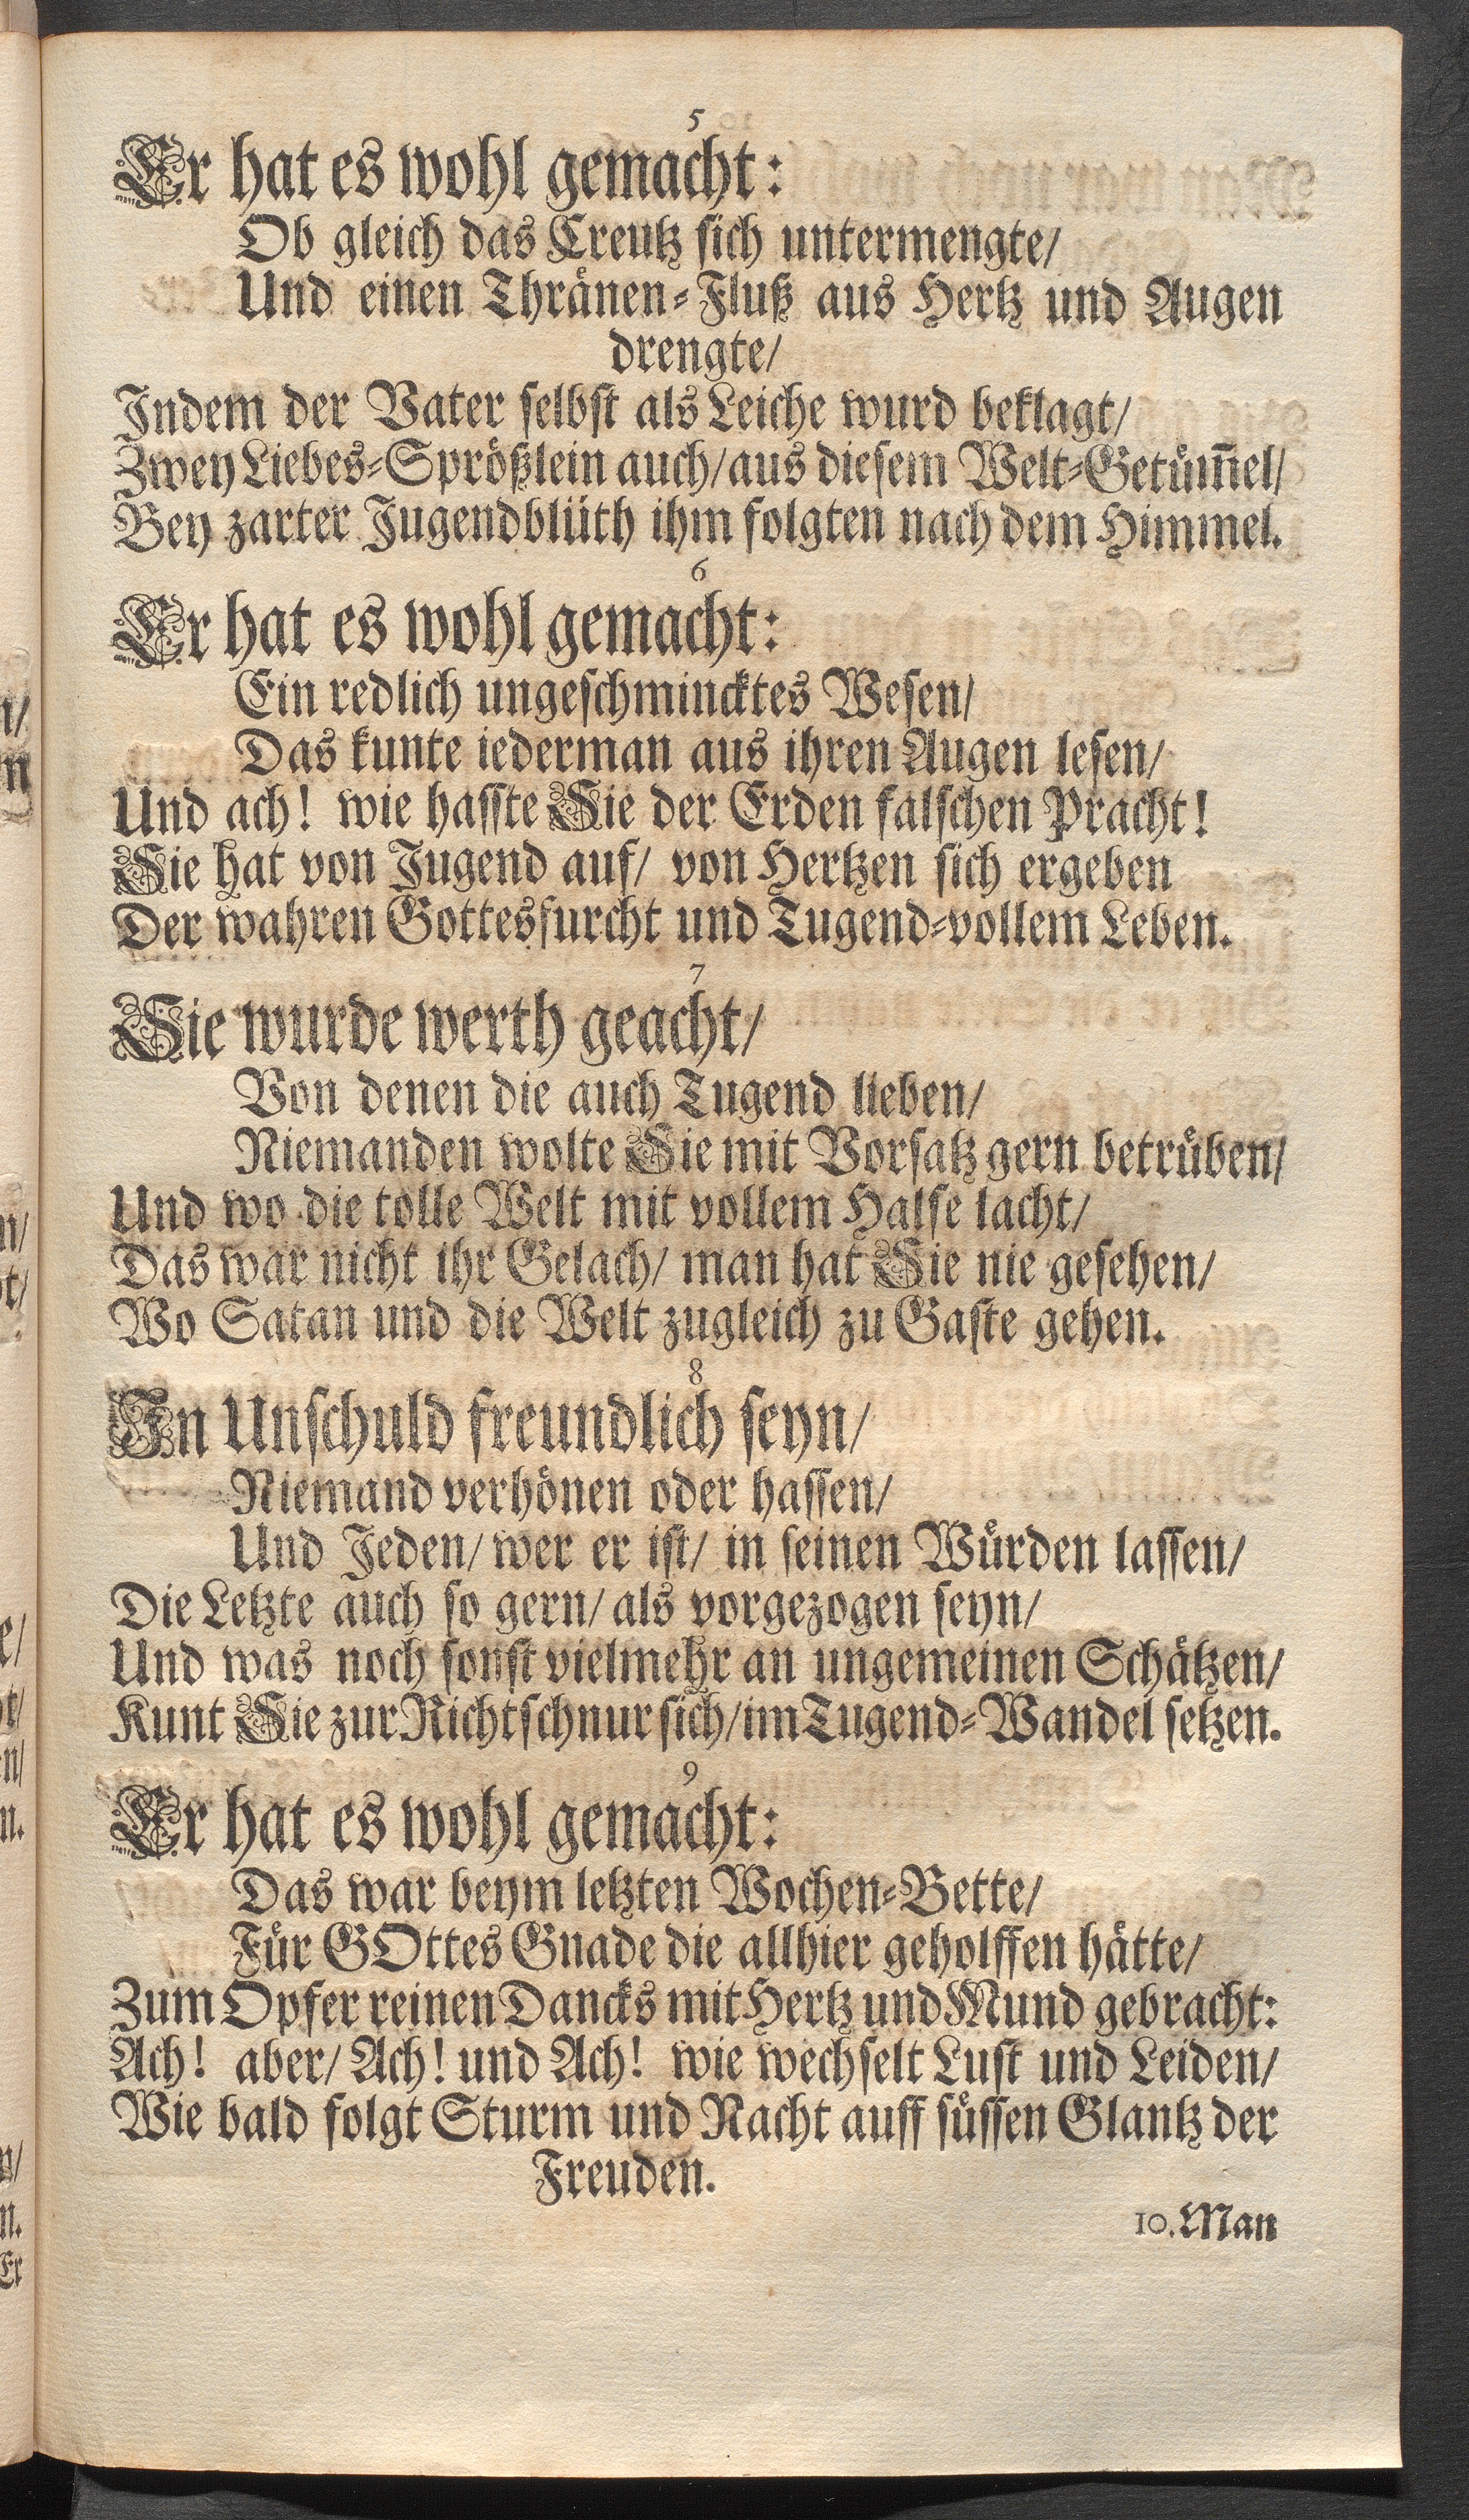 5
Er hat es wohl gemacht:
Ob gleich das Creutz sich untermengte/
Und einen Thränen-Fluß aus Hertz und Augen
drengte/
Indem der Vater selbst als Leiche wurd beklagt/
Zwey Liebes-Sprößlein auch/aus diesem Welt-Getüm̅el/
Bey zarter Jugendblüth ihm folgten nach dem Himmel.
6
Er hat es wohl gemacht:
Ein redlich ungeschmincktes Wesen/
Das kunte iederman aus ihren Augen lesen/
Und ach! wie hasste Sie der Erden falschen Pracht!
Sie hat von Jugend auf/ von Hertzen sich ergeben
Der wahren Gottesfurcht und Tugend-vollem Leben.
7
Sie wurde werth geacht/
Von denen die auch Tugend lieben/
Niemanden wolte Sie mit Vorsatz gern betrüben/
Und wo die tolle Welt mit vollem Halse lacht/
Das war nicht ihr Gelach/ man hat Sie nie gesehen/
Wo Satan und die Welt zugleich zu Gaste gehen.
8
In Unschuld freundlich seyn/
Niemand verhönen oder hassen/
Und Jeden/ wer er ist/ in seinen Würden lassen/
Die Letzte auch so gern/ als vorgezogen seyn/
Und was noch sonst vielmehr an ungemeinen Schätzen/
Kunt Sie zur Richtschnur sich/im Tugend-Wandel setzen.
9
Er hat es wohl gemacht:
Das war beym letzten Wochen-Bette/
Für GOttes Gnade die allhier geholffen hätte/
Zum Opfer reinen Dancks mit Hertz und Mund gebracht:
Ach! aber/ Ach! und Ach! wie wechselt Lust und Leiden/
Wie bald folgt Sturm und Nacht auff süssen Glantz der
Freuden.
10. Man